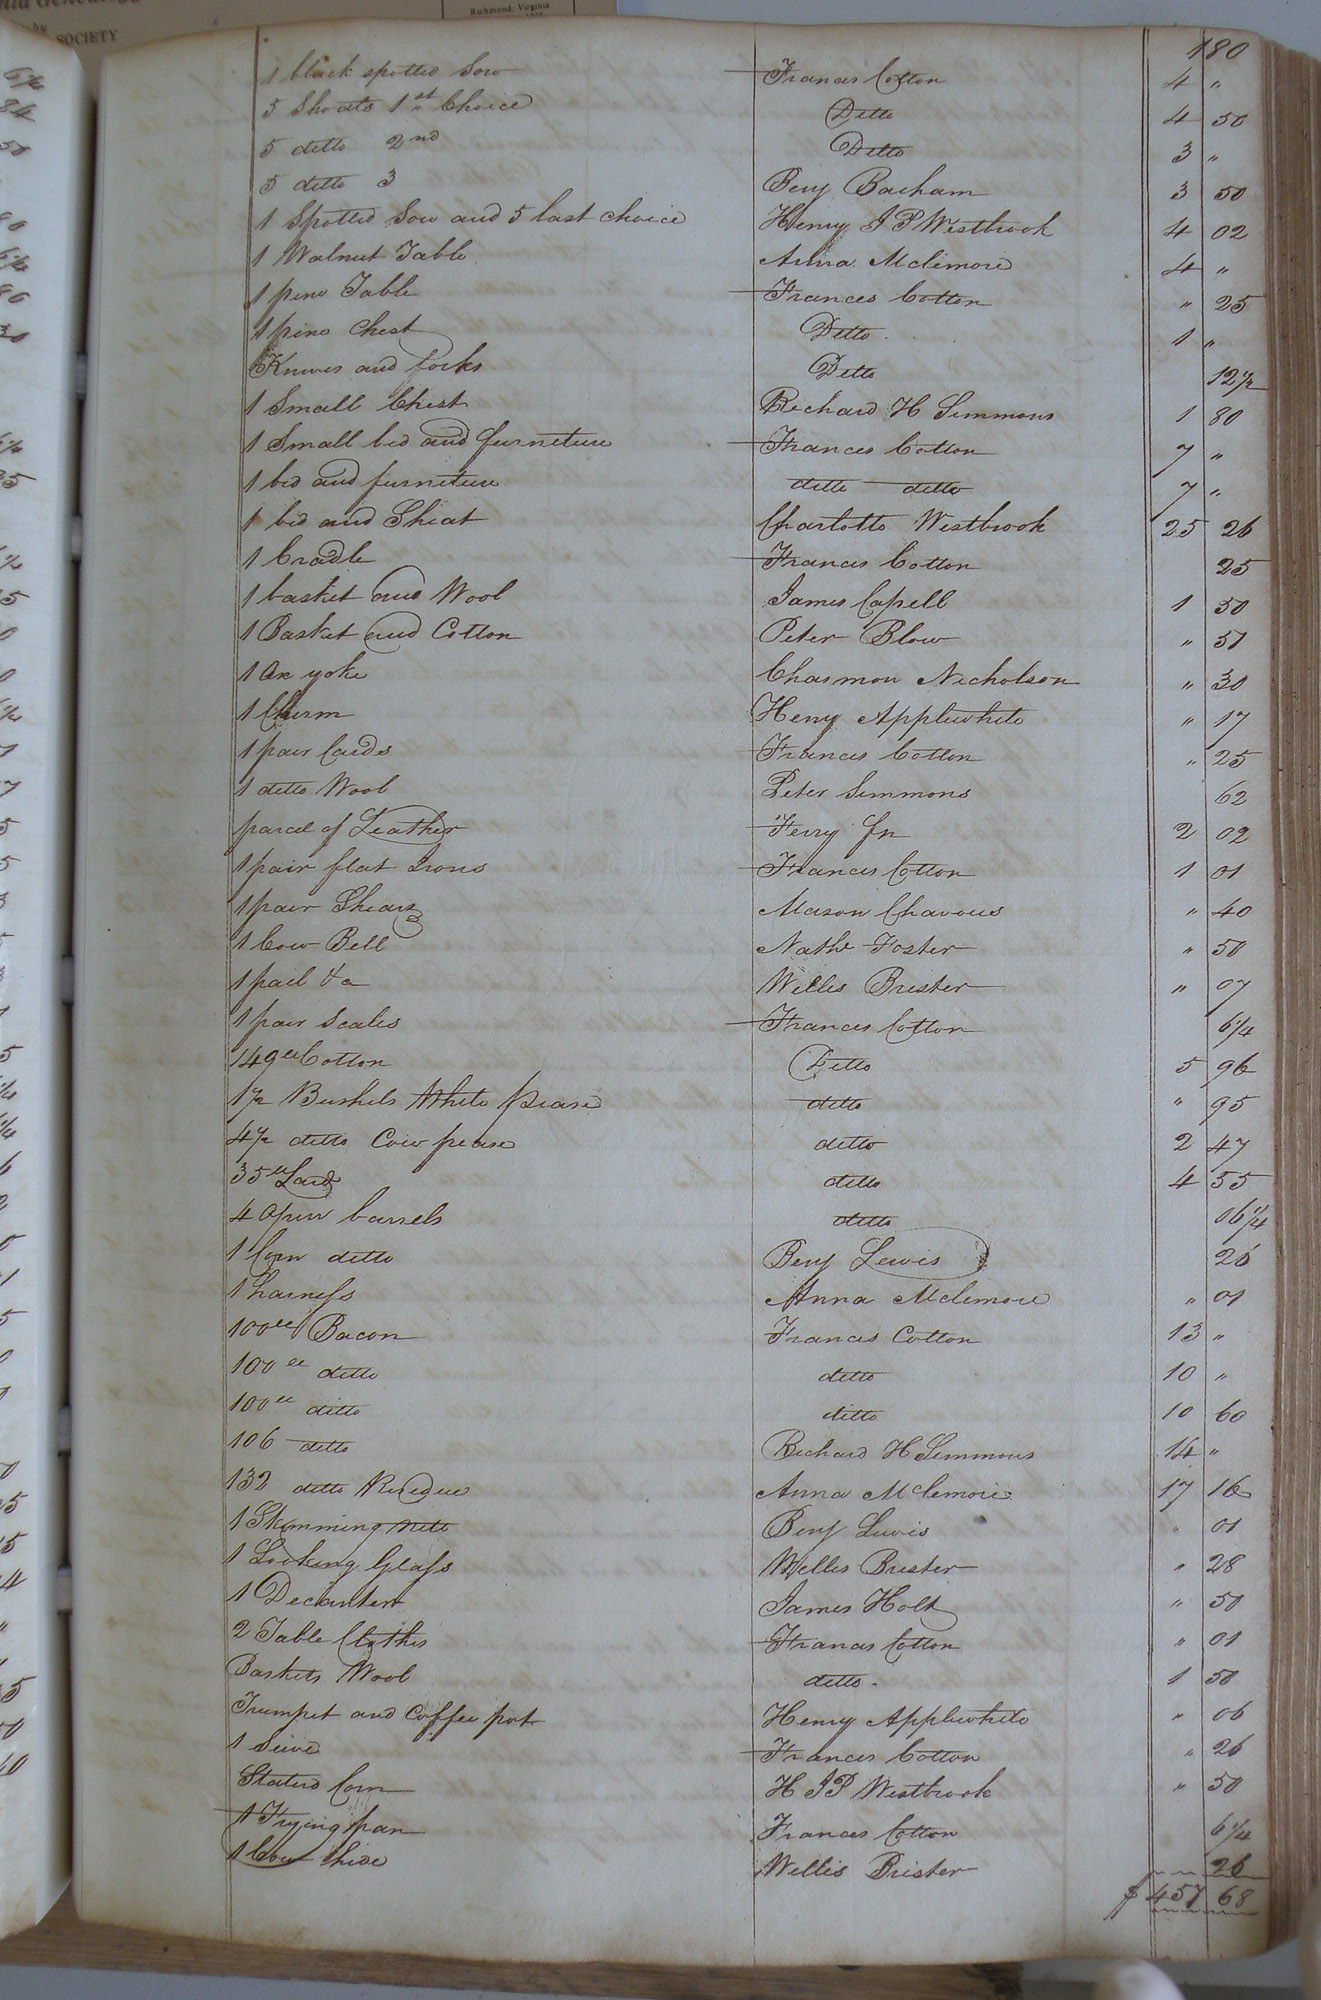 Richmond, Virginia
SOCIETY
180
1 black spotted Sow Frances Cotton 4 "
5 Shoats 1st Choice Ditto 4 50
5 ditto 2nd Ditto 3 "
5 ditto 3 Benj Barham 3 50
1 Spotted Sow and 5 last choice Henry J P Westbrook 4 02
1 Walnut Table Anna Mclemore 4 "
1 pine Table Frances Cotton " 25
1 pine Chest Ditto 1 "
Knives and forks Ditto 12 1/2
1 Small Chest Richard H Simmons 1 80
1 Small bed and furneture Frances Cotton 7 "
1 bed and furneture ditto ditto 7 "
1 bed and Sheat Charlotte Westbrook 25 26
1 Cradle Frances Cotton 25
1 basket and Wool James Capell 1 30
1 Basket and Cotton Peter Blow " 51
1 ox yoke Chasmon Nicholson " 30
1 Churm Heny Applewhite " 17
1 pair Cards Frances Cotton " 25
1 ditto Wool Peter Simmons 62
parcel of Leather Ferry Jn 2 02
1 pair flat Irons Frances Cotton 1 01
1 pair Shears Mason Chavous " 40
1 Cow Bell Nathl Foster " 50
1 pail &a Willis Brister " 07
1 pair Scales Frances Cotton 6 1/4
149 lb Cotton Ditto 5 96
1 1/2 Bushels White pease ditto " 95
4 1/2 ditto Cow pease ditto 2 47
35 lb Lard ditto 4 55
4 open barrels ditto 06 1/4
1 Corn ditto Benj Lewis 26
1 harness Anna Mclemore " 01
100 lb Bacon Frances Cotton 13 "
100 lb ditto ditto 10 "
100 lb ditto ditto 10 60
106 ditto Richard H Simmons 14 "
132 ditto Residue Anna Mclemore 17 16
1 Skimming nett Benj Lewis " 01
1 Looking Glass Willis Brister " 28
1 Decanter James Holt " 50
2 Table Clothes Frances Cotton " 01
Baskets Wool ditto 1 50
Trumpet and Coffee pot Henry Applewhite " 06
1 Seive Frances Cotton " 26
Corn H J P Westbrook " 50
1 Frying pan Frances Cotton 6 1/4
1 Cow hide Willis Brister 26
$ 457 68